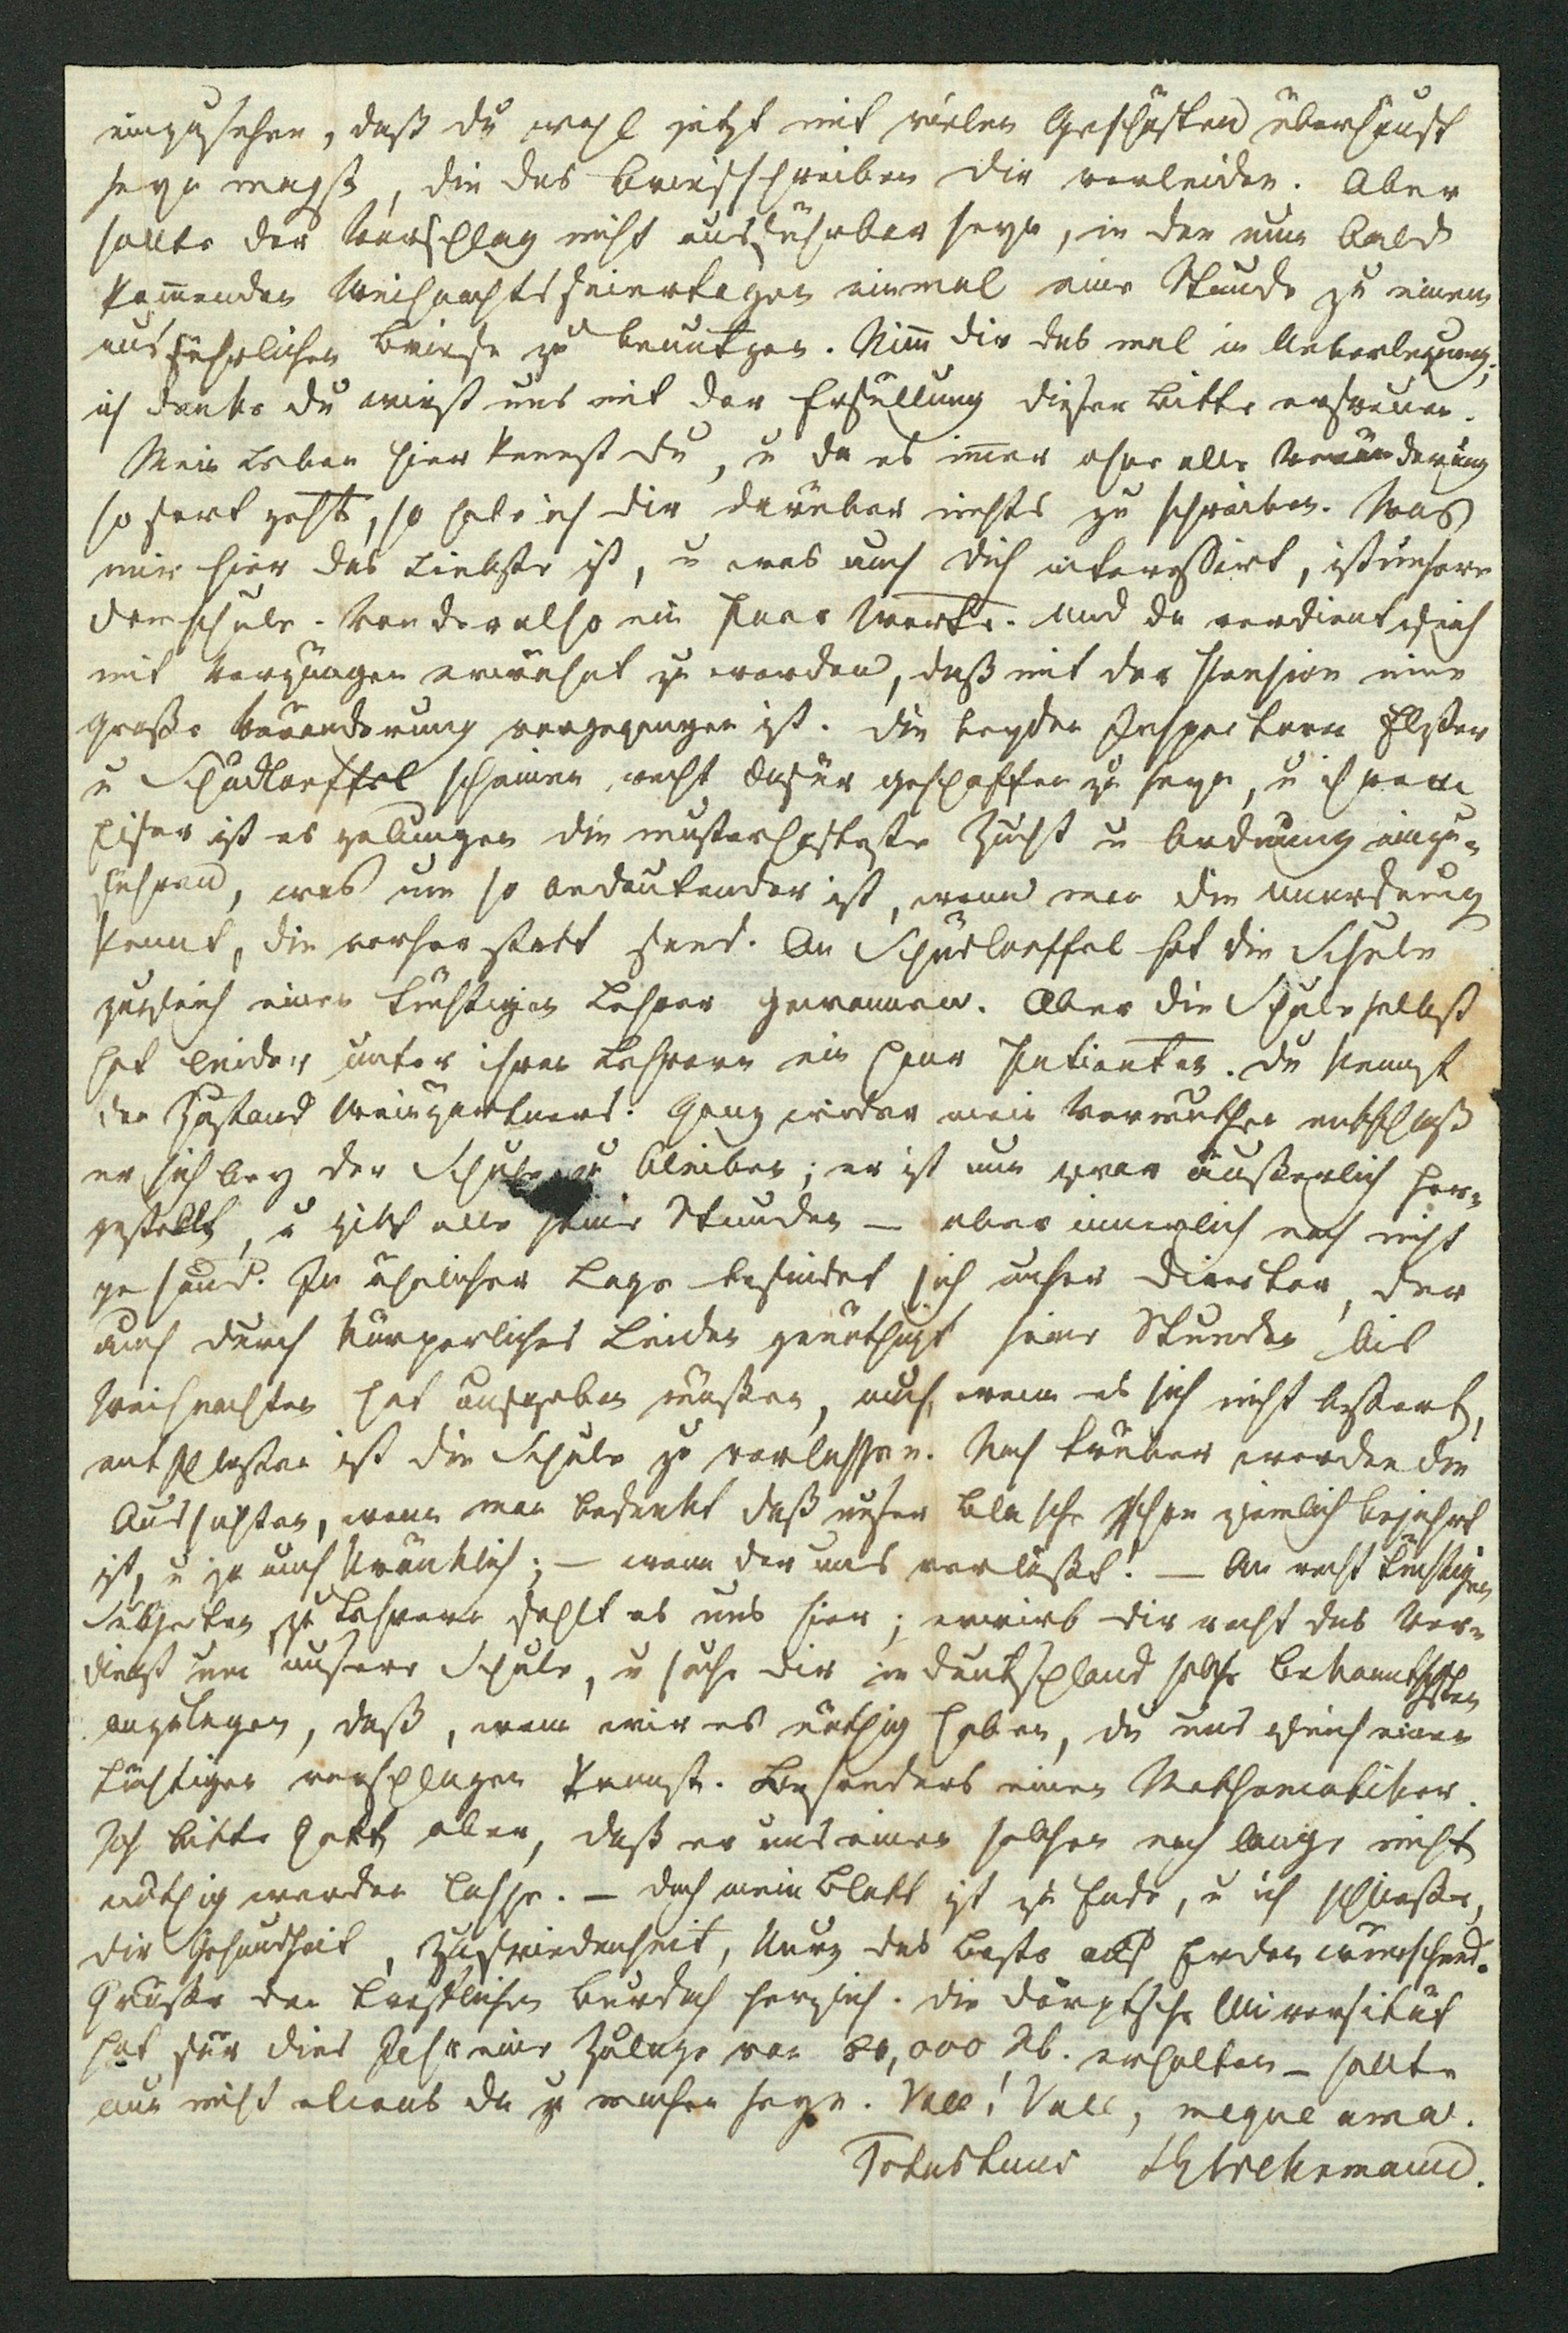 einzusehen, daß du wohl jetzt mit vielen Geschäften überhäuft
seyn magst, die das Briefschreiben dir verleiden. Aber
sollte der Vorschlag nicht ausführbar seyn, in den nun bald
kom̄enden Weihnachtsfeiertagen einmal eine Stunde zu einem
ausführlichen Briefe zu benutzen. Nim̄ dir das mal in Ueberlegung;
ich denke du wirst uns mit der Erfüllung dieser Bitte erfreuen.
Mein Leben hier kennst du, u da es im̄er ohne alle Veränderung
so fort geht, so habe ich dir darüber nichts zu schreiben. Was
mir hier das Liebste ist, u was auch dich interessirt, ist unsere
Domschule. Von der also ein paar Worte. Und da verdient gleich
mit Vergnügen erwähnt zu werden, daß mit der Pension eine
große Veränderung vorgegangen ist. Die beyden Inspectoren Elster
u Schüdloeffel scheinen recht dafür geschaffen zu seyn, u ihnen
ist es gelungen die musterhafteste Zucht u Ordnung einzu-
führen, was um so bedeutender ist, wenn man die Unordnung
kennt, die vorher statt fand. An Schüdloeffel hat die Schule
zugleich einen tüchtigen Lehrer gewonnen. Aber die Schule selbst
hat leider unter ihren Lehrern ein paar Patienten. Du kennst
den Zustand Weingärtners. Ganz wider mein Vermuthen entschloß
er sich bey der Schule zu bleiben; er ist nun zwar äußerlich her-
gestellt, u gibt alle seine Stunden — aber innerlich noch nicht
gesund. In ähnlicher Lage befindet sich unser Director, der
auch durch körperliches Leiden genöthigt seine Stunden bis
Weihnachten hat aufgeben müssen, auch, wenn es sich nicht bessert,
entschlossen ist die Schule zu verlassen. Noch trüber werden die
Aussichten, wenn man bedenkt daß unser Blasche schon ziemlich bejahrt
ist, u ja auch kränklich; — wenn der uns verläßt! — An recht tüchtigen
Subjecten zu Lehrern fehlt es uns hier; erwirb dir recht das Ver-
dienst um unsere Schule, u suche dir in Deutschland solche Bekanntschften
anzulegen, daß, wenn wir es nöthig haben, du uns gleich einen
tüchtigen vorschlagen kannst. Besonders einen Mathematiker.
Ich bitte Gott aber, daß er uns einen solchen noch lange nicht
nöthig werden lasse. — Doch mein Blatt ist zu Ende, u ich schließe,
dir Gesundheit, Zufriedenheit, kurz das Beste auf Erden wünschend.
Grüße den trefflichen Burdach herzlich. Die dörptsche Universität
hat für dies Jahr eine Zulage von 80,000 Rb. erhalten — sollte
nun nicht etwas da zu machen seyn. Vale! Vale, meque ama.
Totus tuus Wehrmann.